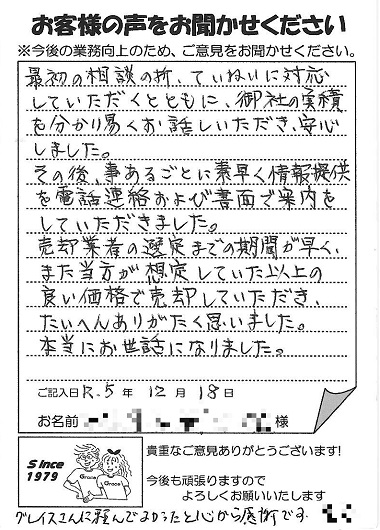 お客様の声をお聞かせください
※今後の業務向上のため、ご意見をお聞かせください。
最初の相談の折、ていねいに対応
していただくとともに、御社の実績
を分かり易くお話しいただき、安心
しました。
その後、事あるごとに素早く情報提供
を電話連絡および書面で案内を
していただきました。
売却業者の選定までの期間が早く、
また当方が想定していた以上の
良い価格で売却していただき、
たいへんありがたく思いました。
本当にお世話になりました。
ご記入日 R.5 年 12 月 18 日
お名前 様
Since
1979
Grace
Grace
貴重なご意見ありがとうございます!
今後も頑張りますので
よろしくお願いいたします
グレイスさんに頼んでよかったと心から感謝です。